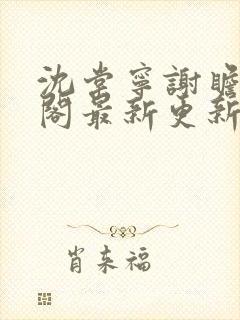 沈棠寧謝瞻
閣最新更新
肖來福